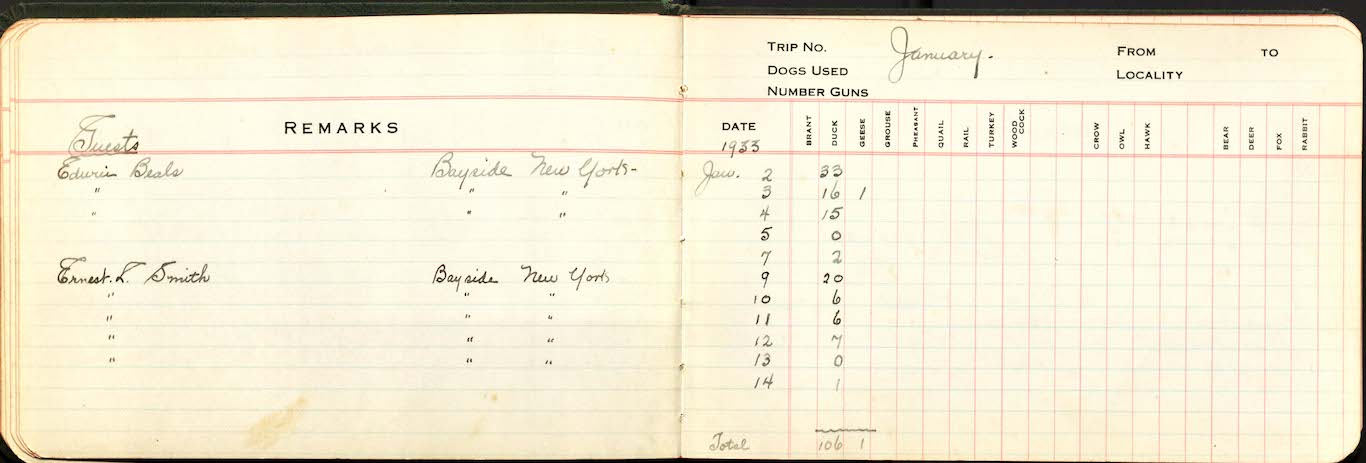 REMARKS
Guests
Edwin Beals Bayside New York-
" " "
" " "
Ernest. L. Smith Bayside New York
" " "
" " "
" " "
" " "
TRIP NO. January. FROM TO
DOGS USED LOCALITY
NUMBER GUNS
DATE BRANT DUCK GEESE GROUSE PHEASANT QUAIL RAIL TURKEY WOOD COCK CROW OWL HAWK BEAR DEER FOX RABBIT
1933
Jan. 2 33
3 16 1
4 15
5 0
7 2
9 20
10 6
11 6
12 7
13 0
14 1
Total 106 1